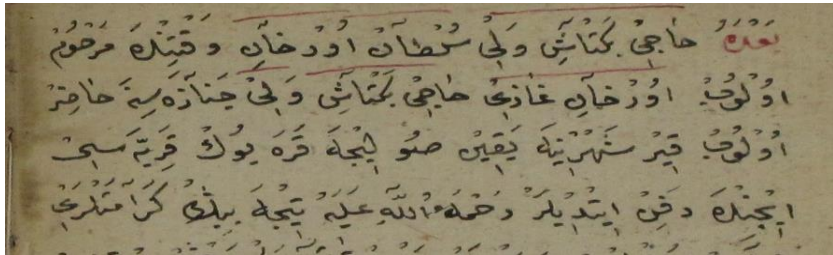 بعده حاجى بكتاش ولى سلطان اورخان وقتنده مرحوم
اولوب اورخان غازى حاجى بكتاش ولى جنازه سنه حاضر
اولوب قير شهرينه يقين صولیجه قره يوك قريه سى
ايچنده دفن ايتديلر رحمة الله عليه نيجه بيك كرامتلرى